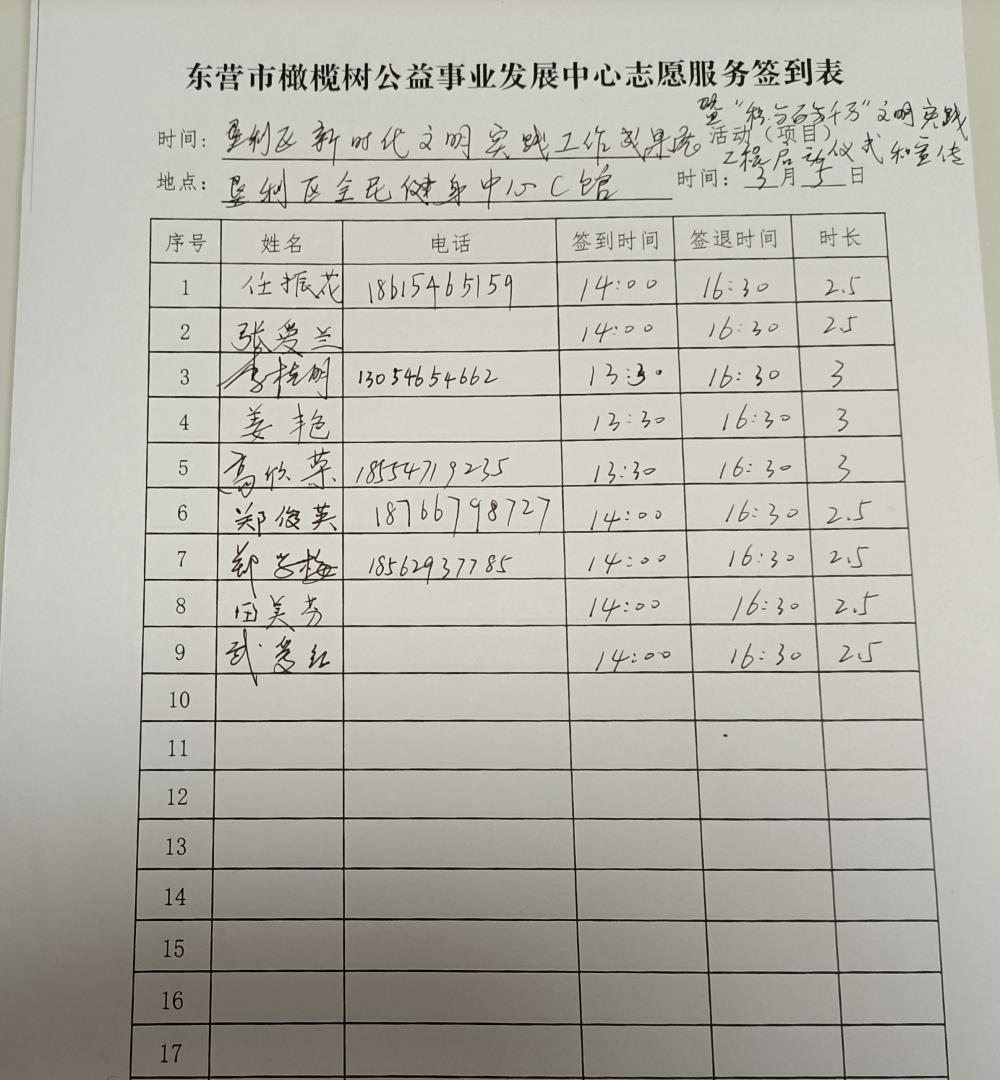 东营市橄榄树公益事业发展中心志愿服务签到表
暨“积分百步千万”文明实践
时间：垦利区新时代文明实践工作成果展 活动（项目）
工程启动仪式和宣传
地点：垦利区全民健身中心C馆 时间：3月5日
序号 姓名 电话 签到时间 签退时间 时长
1 任振花 18615465159 14:00 16:30 2.5
2 张爱兰 14:00 16:30 2.5
3 李桂明 13054654662 13:30 16:30 3
4 姜艳 13:30 16:30 3
5 高欣荣 18554719235 13:30 16:30 3
6 郑俊英 18766798727 14:00 16:30 2.5
7 郑学梅 18562937785 14:00 16:30 2.5
8 田美芳 14:00 16:30 2.5
9 武爱红 14:00 16:30 2.5
10
11
12
13
14
15
16
17